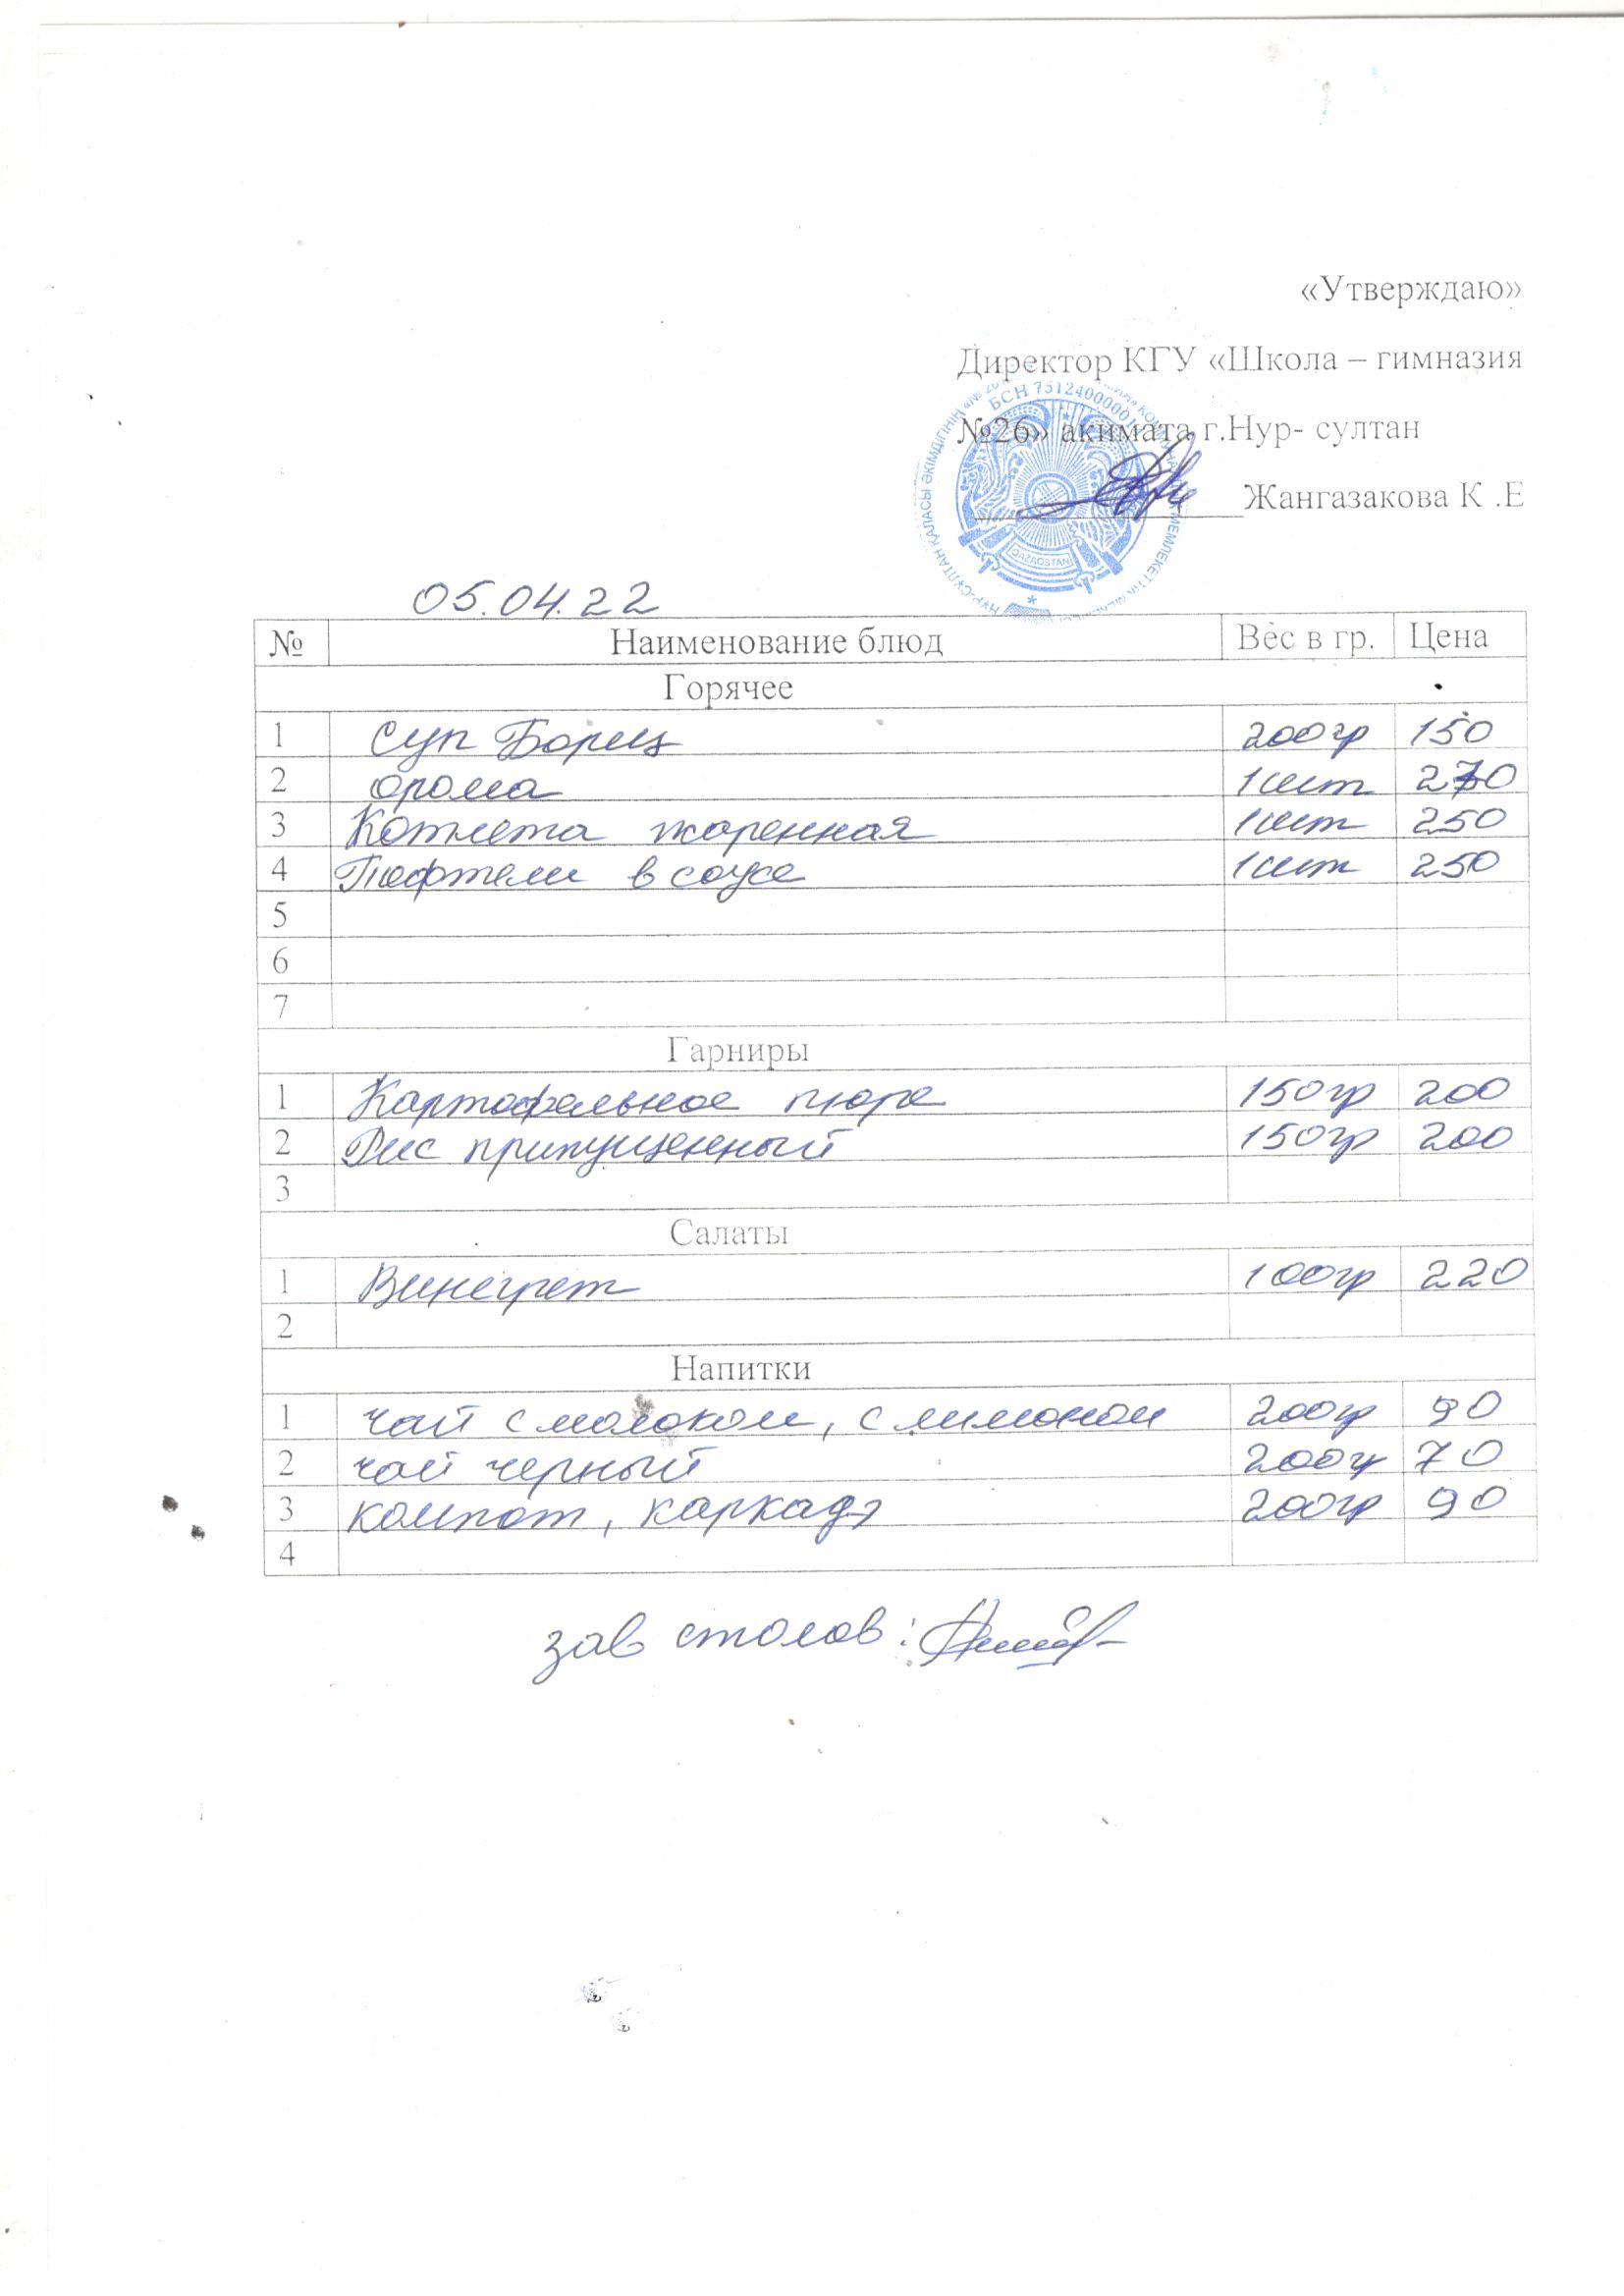 «Утверждаю»
Директор КГУ «Школа – гимназия
№26» акимата г.Нур- султан
Жангазакова К .Е
БСН 7512400000
QAZAQSTAN
05.04.22
№ Наименование блюд Вес в гр. Цена
Горячее
1 Суп Борщ 200гр 150
2 орома 1шт 270
3 Котлета жаренная 1шт 250
4 Тефтели в соусе 1шт 250
5
6
7
Гарниры
1 Картофельное пюре 150гр 200
2 Рис припущенный 150гр 200
3
Салаты
1 Винегрет 100гр 220
2
Напитки
1 чай с молоком, с лимоном 200гр 90
2 чай черный 200гр 70
3 компот, каркадэ 200гр 90
4
зав столов: